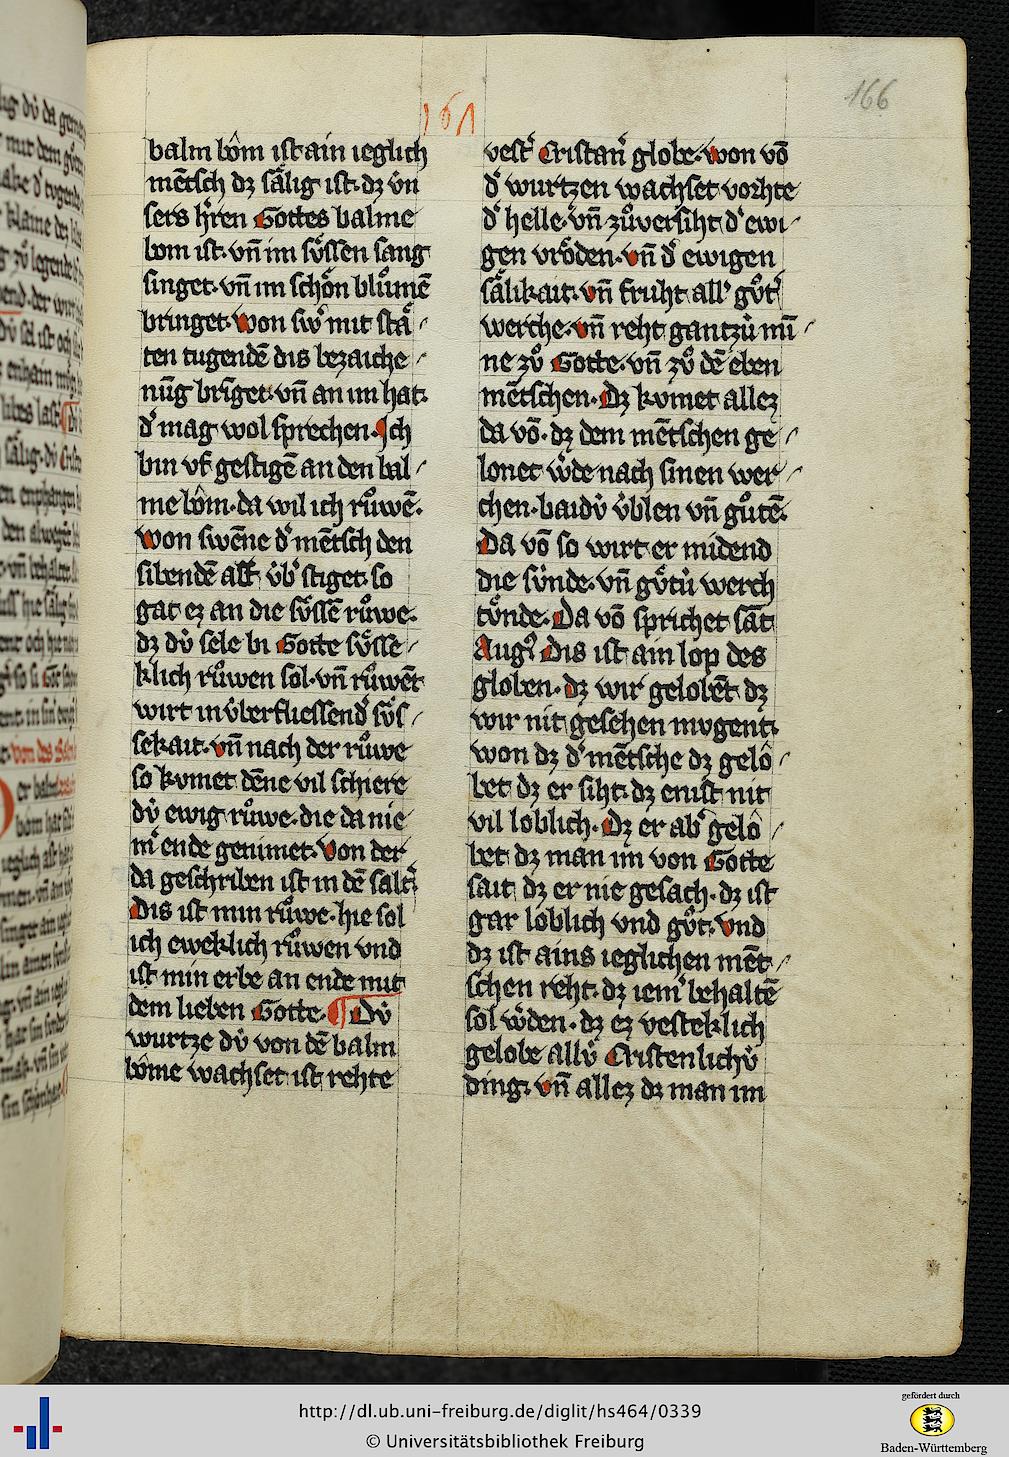 161
166
balm bôm ist ain ieglich
mētsch dz sălig ist. dz v̇n
sers h̓ren Gottes balme
bom ist. vn̄ im sv̊ssen sang
singet. vn̄ im schŏn blůmē
bringet. Won sw̓ mit stă
ten tugendē dis bezaiche
nūg brīget. vn̄ an im hat.
d̓ mag wol sprechen. Ich
bin vf gestigē an den bal
me bôm. da wil ich růwē.
Won swēne d̓ mētsch den
sibendē ast v̇b̓ stiget. so
gat ez an die sv̊ssē růwe.
dz dv̇ sele bi Gotte sv̊sse
klich růwen sol. vn̄ růwēt
wirt in v̇berfliessend̓ sv̊s
sekait. vn̄ nach der růwe
so kvmet dēne vil schiere
dv̇ ewig růwe. die da nie
m̓ ende genimet. Von der
da geschriben ist in dē salt̓
Dis ist min růwe. hie sol
ich eweklich růwen vnd
ist min erbe an ende mit
dem lieben Gotte. ¶ Dv̇
wurtze dv̇ von dē balm
bôme wachset ist rehte
vest̓ Cristan̓ globe. won vō
d̓ wurtzen wachset vorhte
d̓ helle. vn̄ zůversiht d̓ ewi
gen vrŏden. vn̄ d̓ ewigen
sălikait. vn̄ fruht all̓ gůt̓
werche. vn̄ reht gantzv̇ mī
ne zů Gotte. vn̄ zů dē eben
mētschen. Dz kvmet allez
da vō. dz dem mētschen ge
lonet w̓de nach sinen wer
chen. baidv̇ v̇blen vn̄ gůtē.
Da vō so wirt er midend
die sv̇nde. vn̄ gůtv̇ werch
tůnde. Da vō sprichet sāt
Aug9 Dis ist ain lop des
globen. dz wir gelobēt dz
wir nit gesehen mvgent.
won dz d̓ mētsche dz gelô
bet dz er siht. dz enist nit
vil loblich. Dz er ab̓ gelô
bet dz man im von Gotte
sait dz er nie gesach. dz ist
gar loblich vnd gůt. Vnd
dz ist ains ieglichen mēt
schen reht. dz iem̓ behaltē
sol w̓den. dz ez vesteklich
gelobe allv̇ Cristenlichv̇
ding. vn̄ allez dz man im
http://dl.ub.uni-freiburg.de/diglit/hs464/0339
© Universitätsbibliothek Freiburg
gefördert durch
Baden-Württemberg